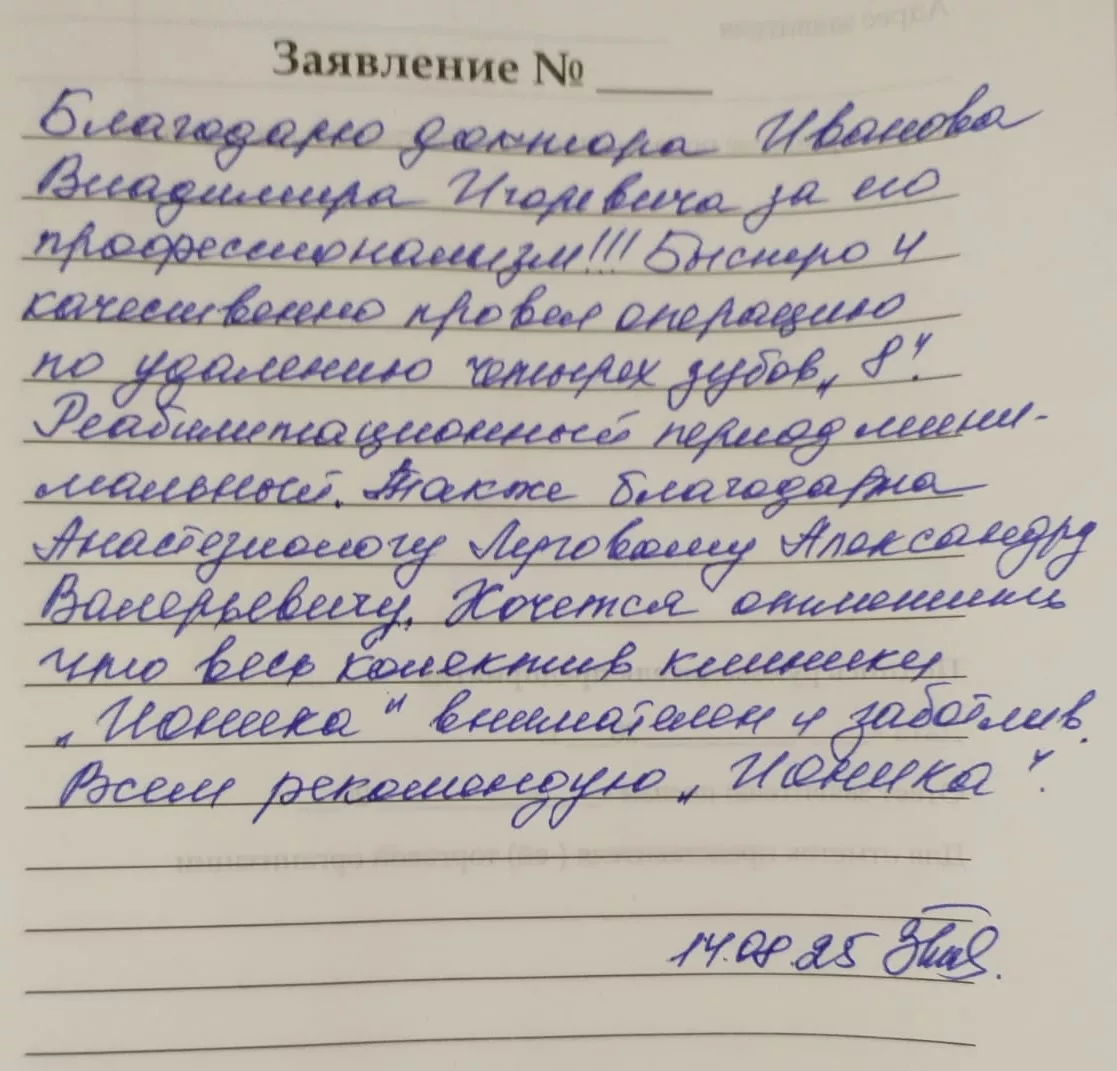 Заявление № _____
Благодарю доктора Иванова
Владимира Игоревича за его
профессионализм!!! Быстро и
качественно провел операцию
по удалению четырех зубов „8“.
Реабилитационный период мини-
мальный. Также благодарна
Анастезиологу Луговому Александру
Валерьевичу. Хочется отметить
что весь колектив клиники
„Ионика“ внимателен и заботлив.
Всем рекомендую „Ионика“.
14.08.25